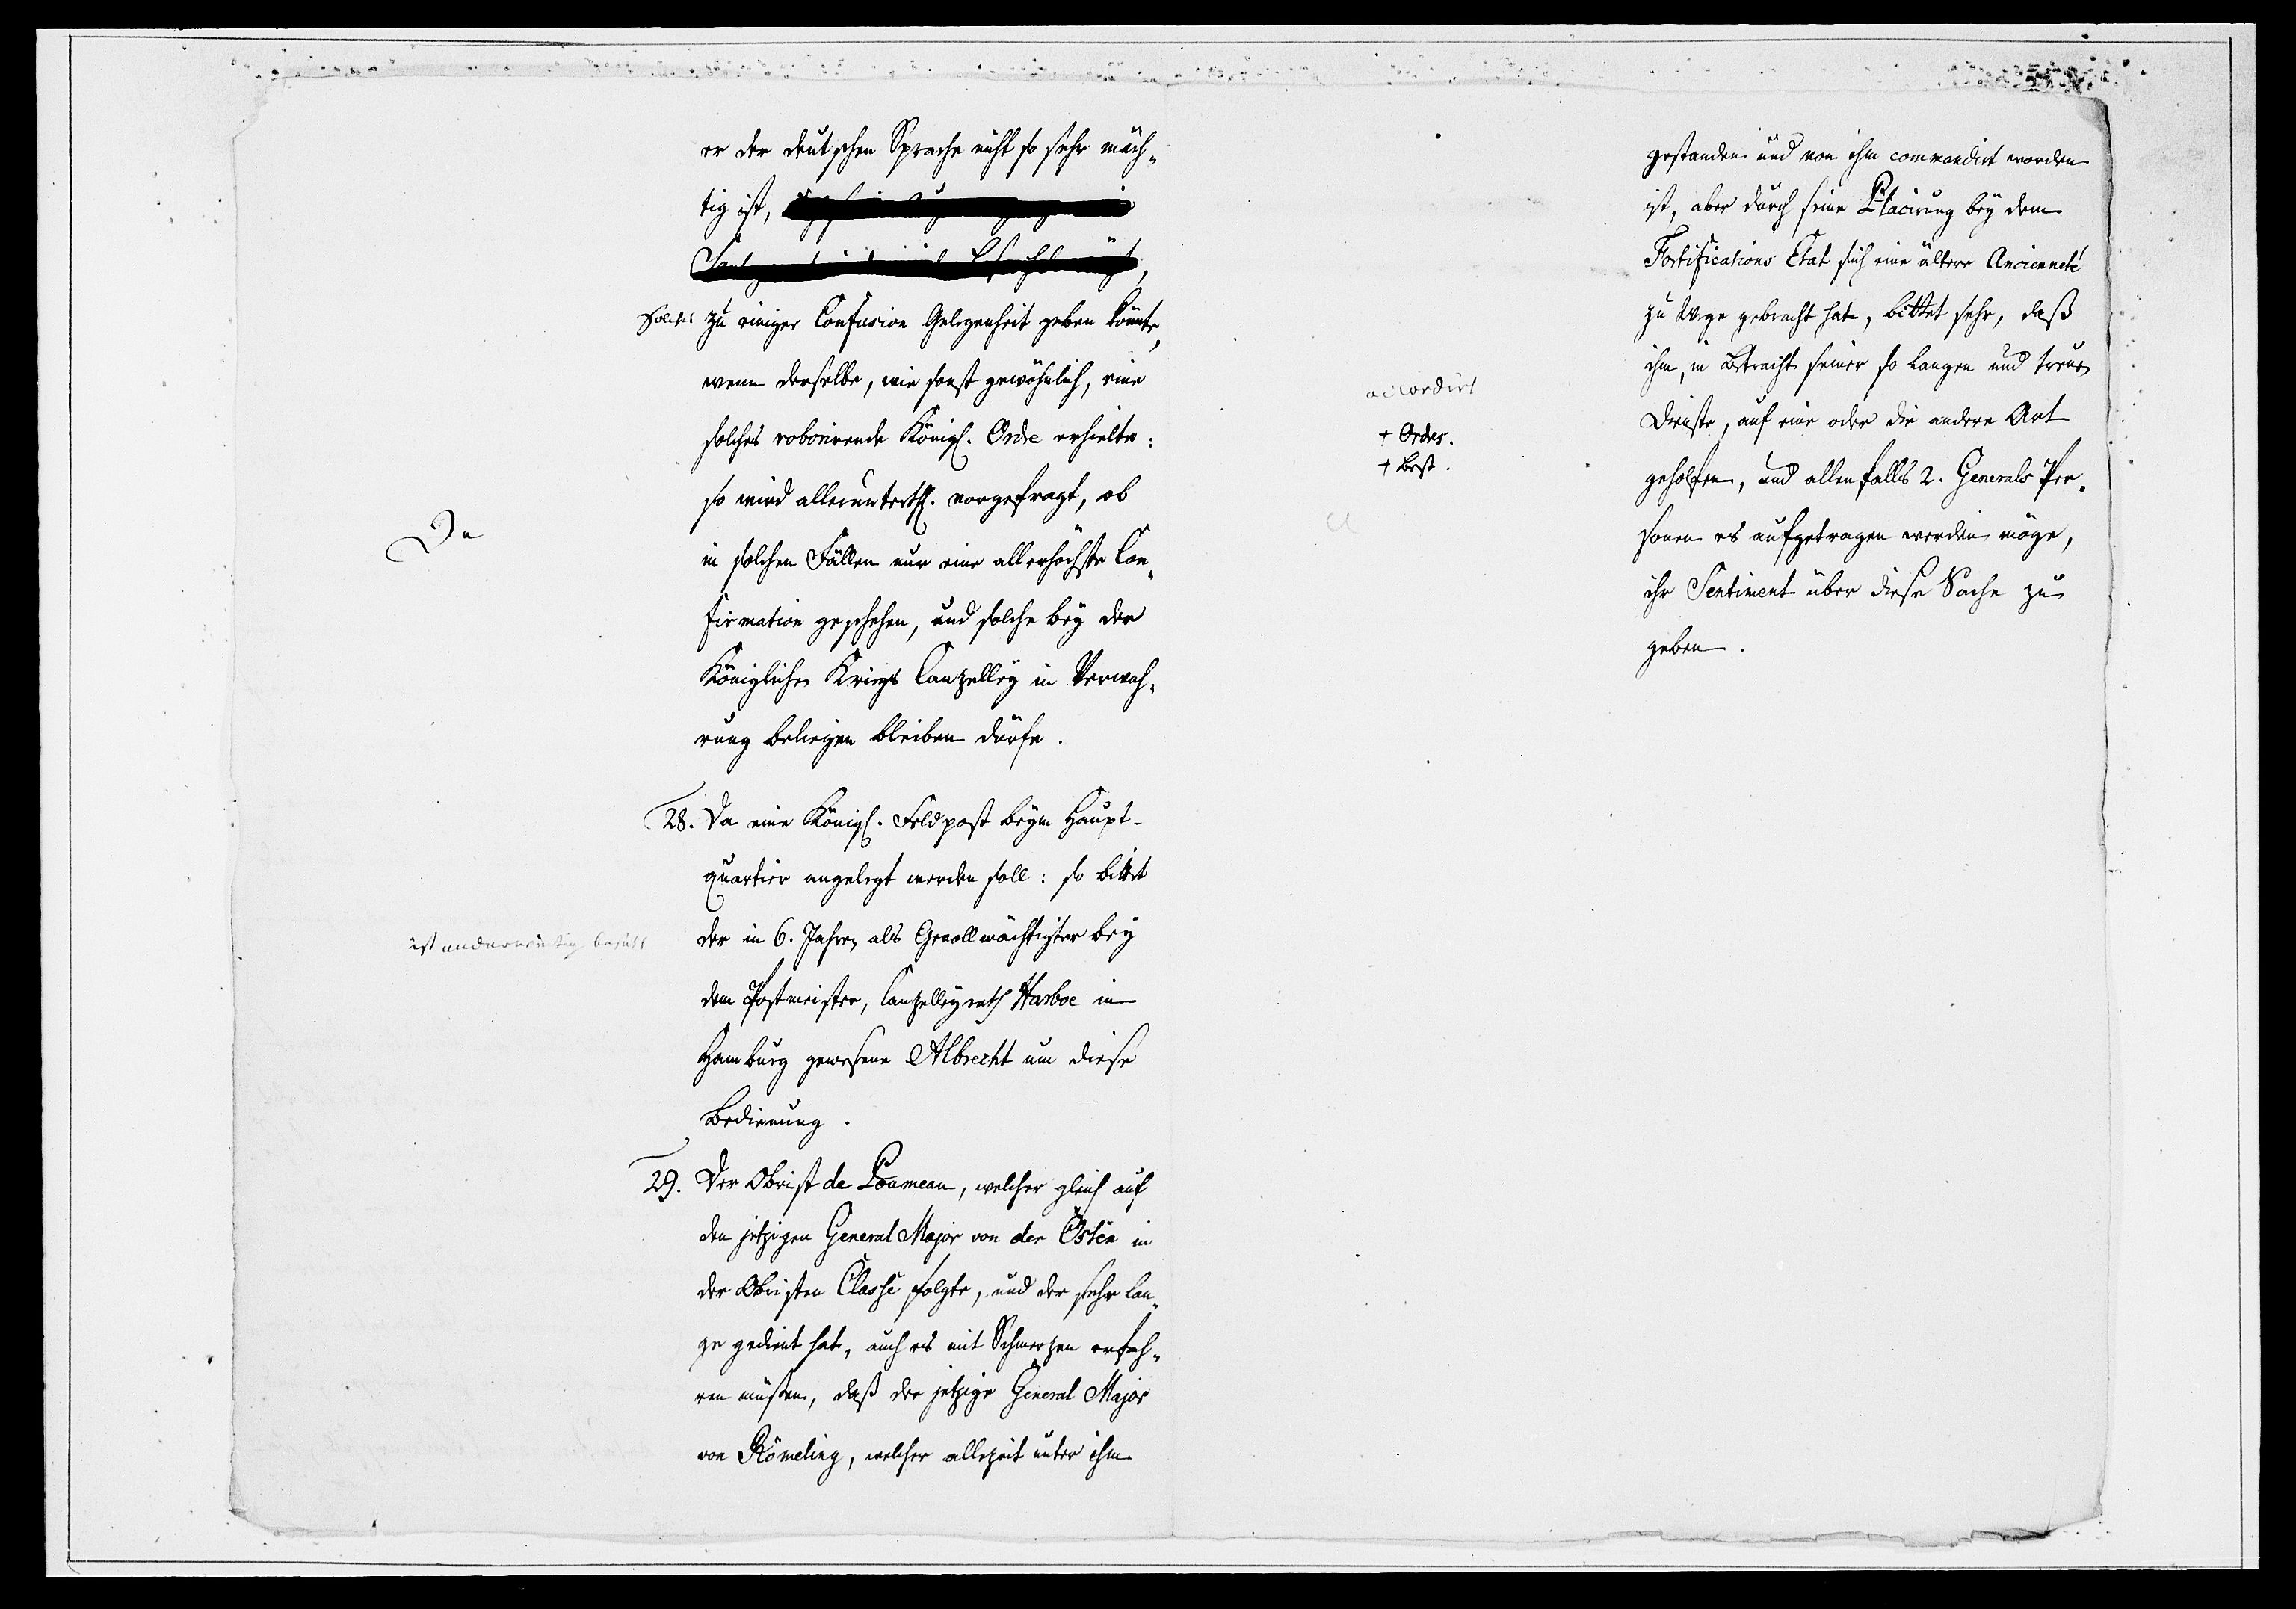 er der deutschen Sprache nicht so sehr mäch-
tig ist,
solches zu einiger Confusion Gelegenheit geben könnte,
wenn derselbe, wie sonst gewöhnlich, eine
solches roborirende Königl. Ordre erhielte:
so wird allerunterth. vorgefragt, ob
Da
in solchen Fällen nur eine allerhöchste Con-
firmation geschehen, und solche bey der
Königlichen Kriegs Canzelley in Verwah-
rung beliegen bleiben dürfe.
28. Da eine Königl. Feldpost beym Haupt-
quartier angelegt werden soll: so bittet
ist anderweitig besetzt
der in 6. Jahren als Gevollmächtigter bey
dem Postmeister, Canzelleyrath Harboe in
Hamburg gewesene Albrecht um diese
Bedienung.
29. Der Obrist de Loumeau, welcher gleich auf
den jetzigen General Major von der Osten in
der Obristen Classe folgte, und der sehr lan-
ge gedient hat, auch es mit Schmerzen erfah-
ren müssen, daß der jetzige General Major
von Römeling, welcher allezeit unter ihm
gestanden und von ihm commandirt worden
ist, aber durch seine Placirung bey dem
Fortifications Etat sich eine ältere Ancienneté
zu Wege gebracht hat, bittet sehr, daß
ihm, in Betracht seiner so langen und treuen
accordirt
Dienste, auf eine oder die andere Art
+ Ordre.
+ Best.
geholfen, und allenfalls 2. Generals Per-
sonen es aufgetragen werden möge,
ihr Sentiment über diese Sache zu
geben.